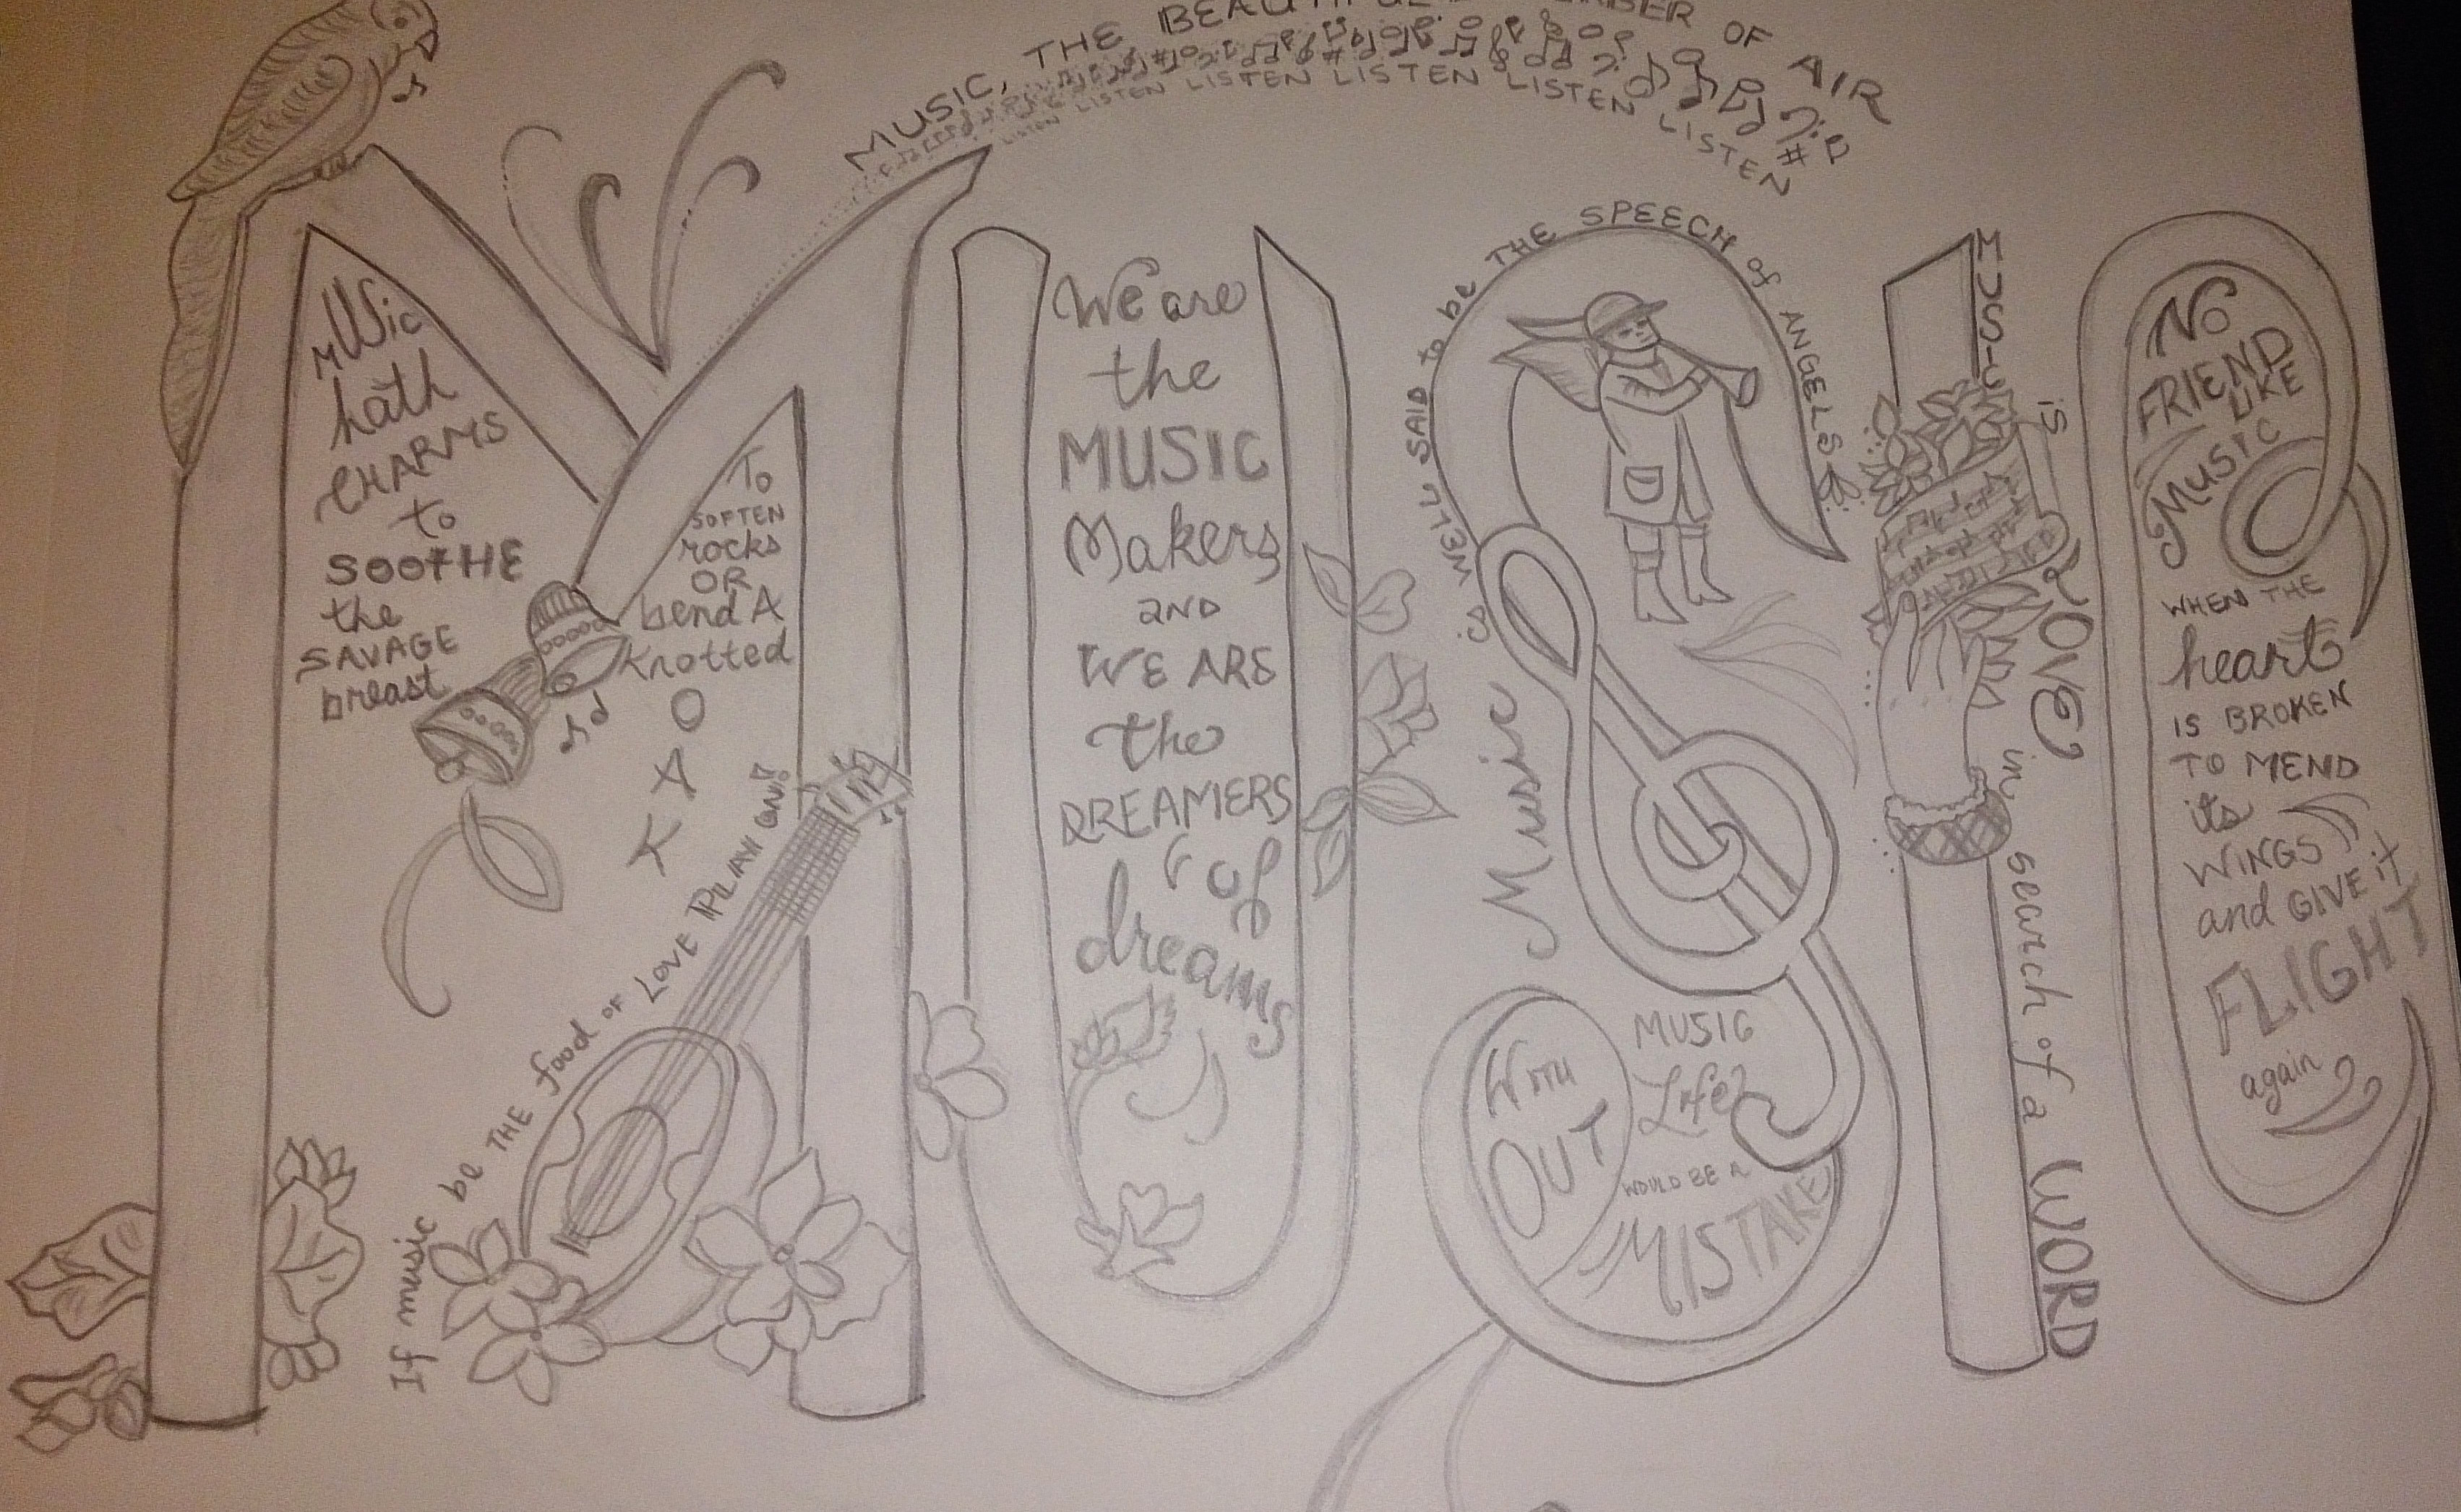 MUSIC, THE BEAUTIFUL OF AIR
LISTEN LISTEN LISTEN LISTEN LISTEN LISTEN LISTEN
MUSic
hath
CHARMS
to
SOOTHE
the
SAVAGE
breast
To
SOFTEN
rocks
OR
bend A
Knotted
O
A
K
If music be THE food OF LOVE PLAY ON!
We are
the
MUSIC
Makers
AND
WE ARE
the
DREAMERS
of
dreams
Music is WELL SAID to be THE SPEECH of ANGELS
WITH
OUT
MUSIC
Life
WOULD BE A
MISTAKE
MUSIC is LOVE in search of a WORD
No
FRIEND
LIKE
MUSIC
WHEN THE
heart
IS BROKEN
TO MEND
its
WINGS
and GIVE it
FLIGHT
again